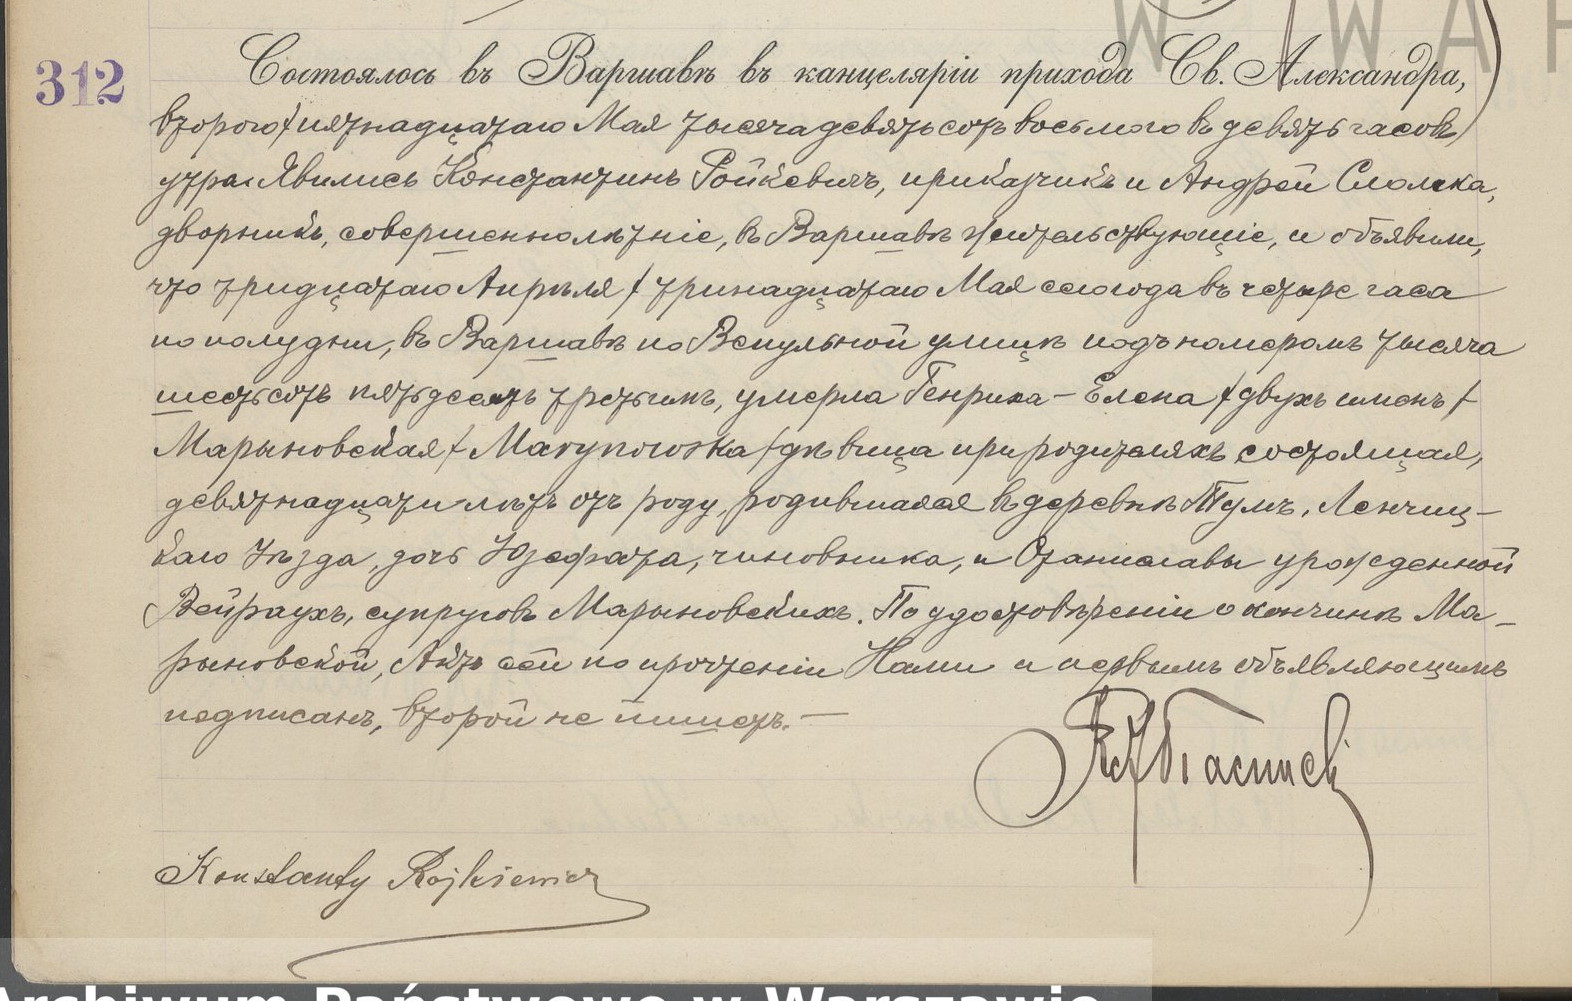 W WA
312
Состоялось въ Варшавѣ въ канцеляріи прихода Св. Александра,
второго / пятнадцатаго Мая тысяча девятьсотъ восьмого въ девять часовъ
утра. Явились Константинъ Ройкевичъ, приказчикъ и Андрей Смолка,
дворникъ, совершеннолѣтніе, въ Варшавѣ жительствующіе, и объявили,
что тридцатаго Апрѣля / тринадцатаго Мая сего года въ четыре часа
по полудни, въ Варшавѣ по Вспульной улицѣ подъ номеромъ тысяча
шестьсотъ пятьдесятъ третьимъ, умерла Генрика - Елена / двухъ именъ /
Марыновская / Marynowska / дѣвица при родителяхъ состоящая,
девятнадцати лѣтъ отъ роду, родившаяся въ деревнѣ Тумъ, Ленчиц-
каго Уѣзда, дочь Юзефата, чиновника, и Станиславы урожденной
Вейраухъ, супруговъ Марыновскихъ. По удостовѣреніи о кончинѣ Ма-
рыновской, Актъ сей по прочтеніи Нами и первымъ объявляющимъ
подписанъ, второй не пишетъ. —
Konstanty Rojkiewicz
Archiwum Państwowe w Warszawie